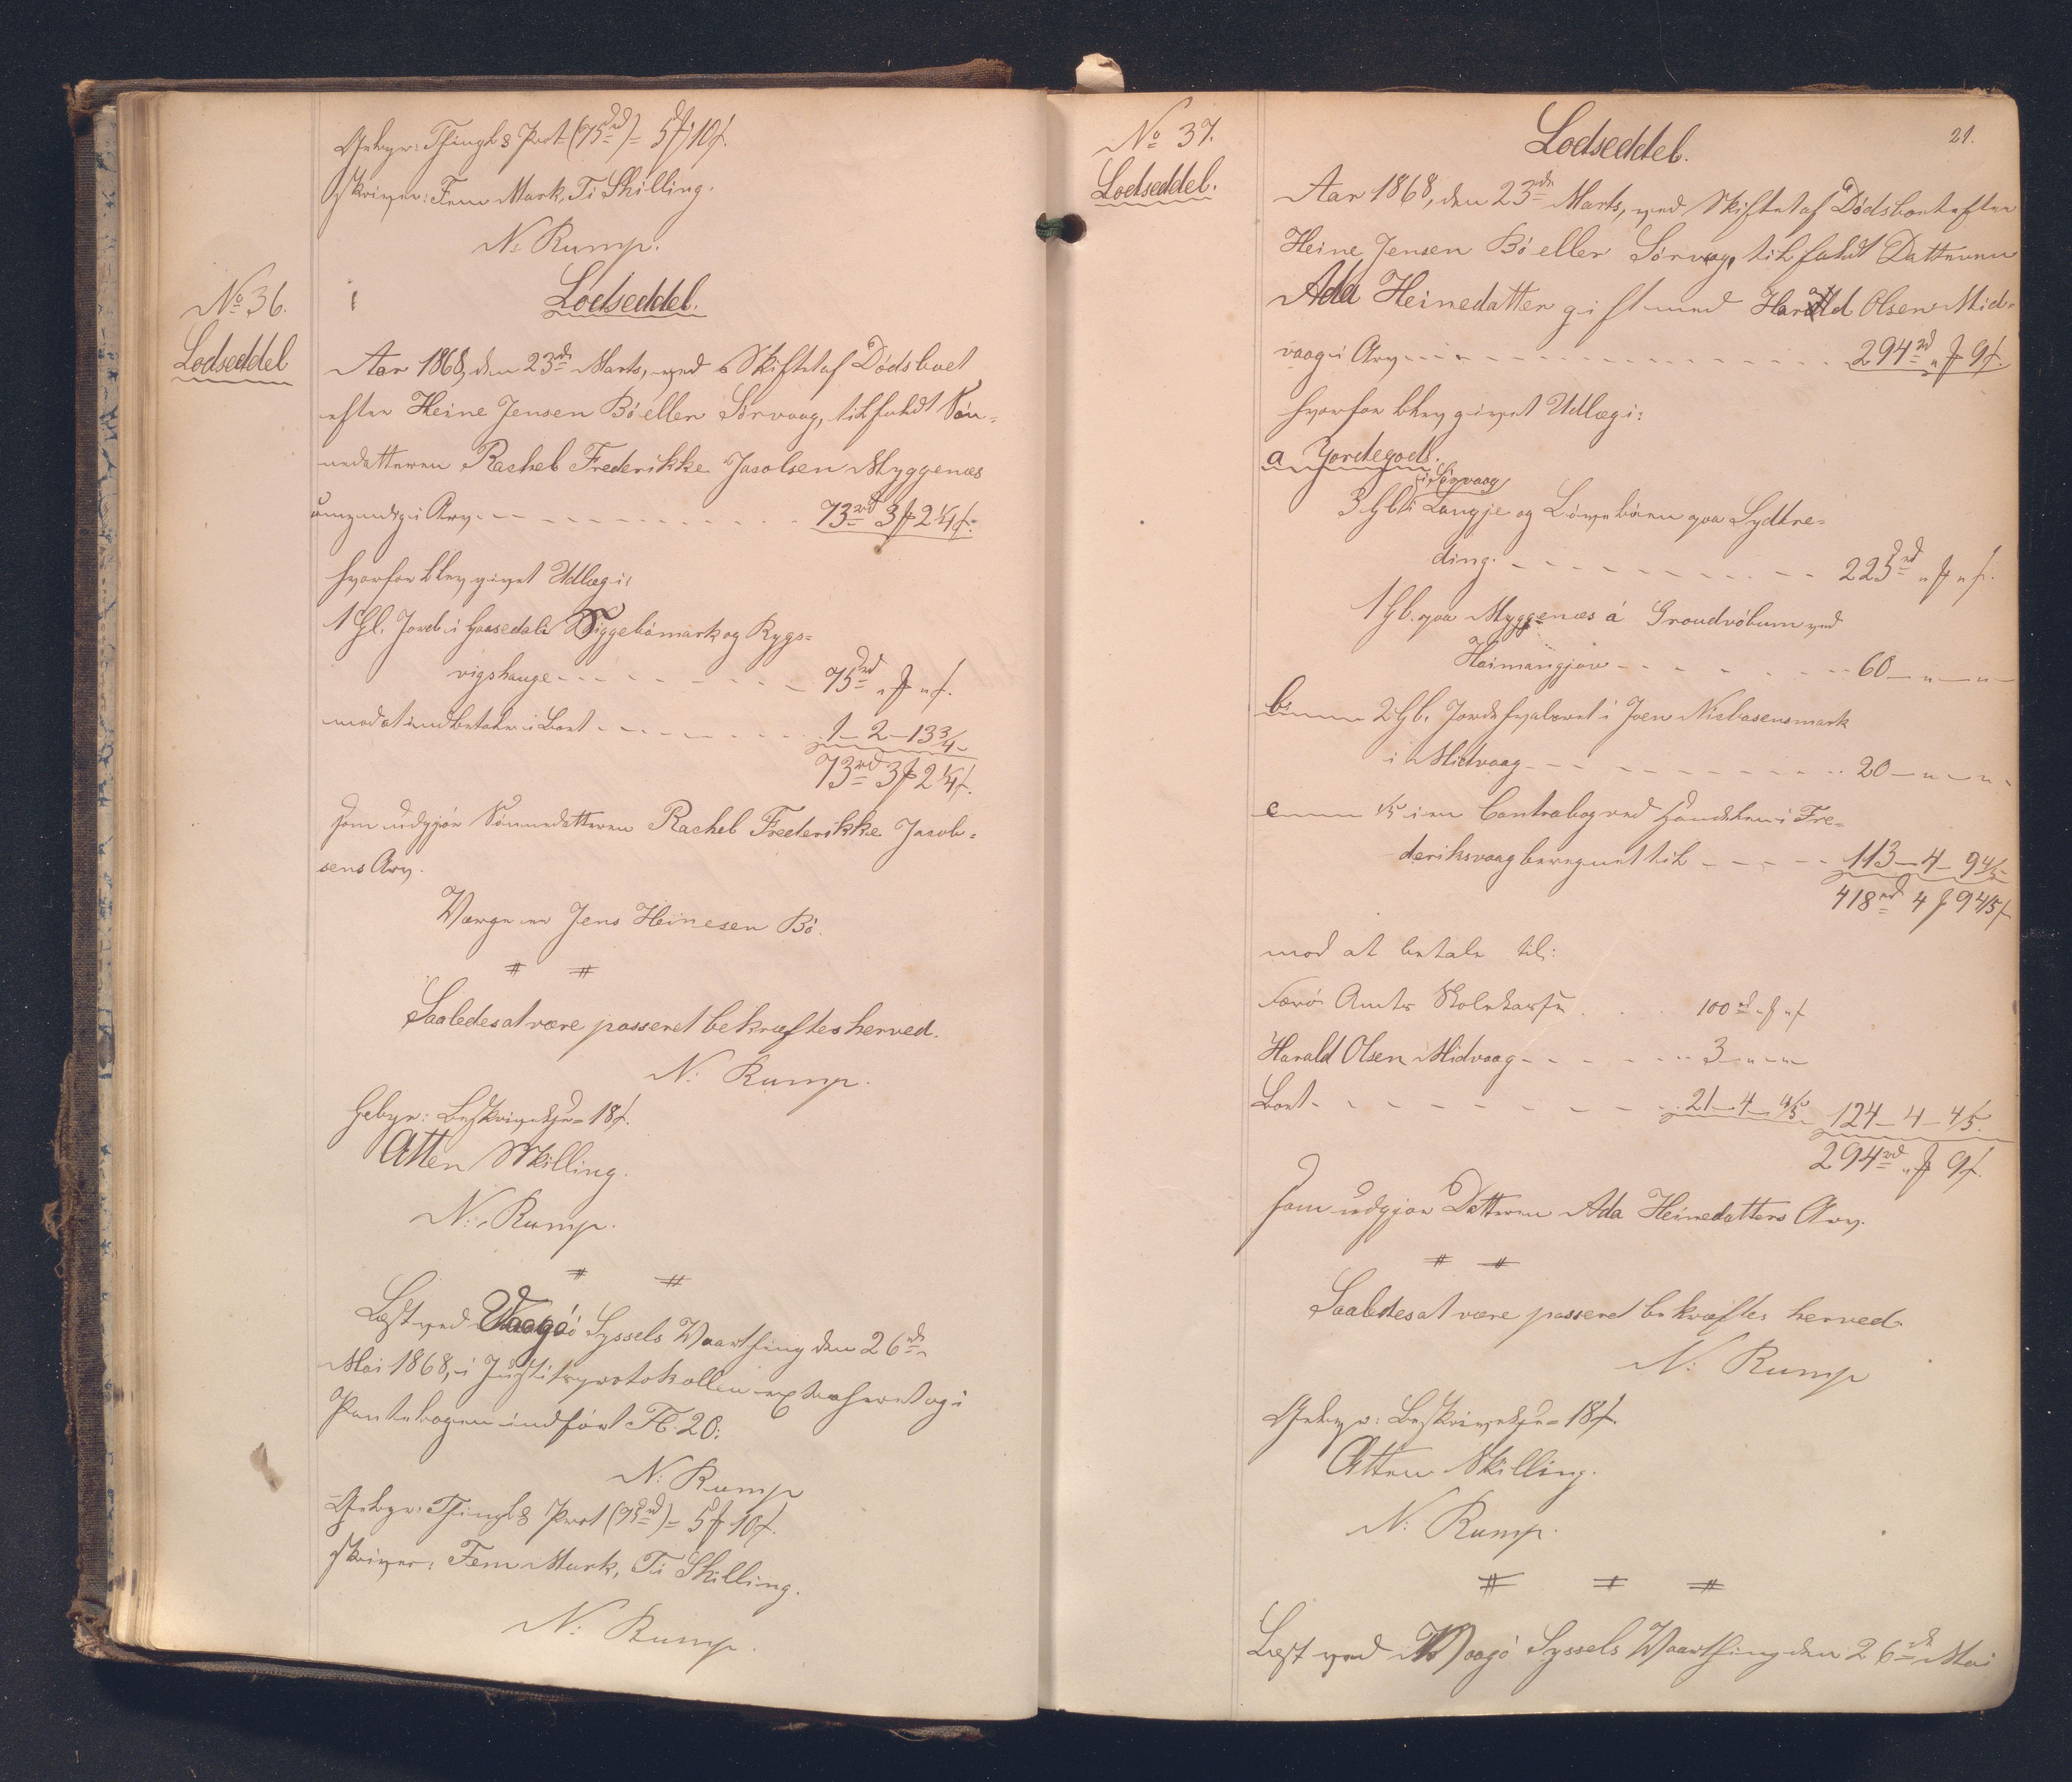 Gebyr: Thingl: & Prot (75rd) = 5 ₰ 10 f.
skriver: Fem Mark, Ti Skilling.
N: Rump.
No 36.
Lodseddel
Lodseddel.
Aar 1868, den 23de Marts, ved Skiftet af Dødsboet
efter Heine Jensen Bö eller Sörvaag, tilfaldt Sön-
nedatteren Rachel Frederikke Jacobsen Myggenæs
umyndig i Arv 73rd 3 ₰ 2 1/4 f.
hvorfor blev givet Udlæg i:
1 Gl. Jord i Giggebömark og Rygs=
vigshauge 75rd " ₰ " f.
mod at indbetale i Boet 1 - 2 - 13 3/4
73rd 3 ₰ 2 1/4 f.
som udgjör Sönnedatteren Rachel Frederikke Jacob-
sens Arv.
Værge er Jens Heinesen Bö.
Saaledes at være passeret bekræftes herved.
N: Rump.
Gebyr: Beskrivelse = 18 f.
Atten Skilling.
N: Rump.
Læst ved Vaagö Syssels Vaarthing den 26de
Mai 1868, i Justitsprotokollen extraheret og i
Pantebogen indfört Fl. 20.
N: Rump
Gebyr: Thingl & Prot (75rd) = 5 ₰ 10 f.
skriver: Fem Mark, Ti Skilling.
N: Rump.
21.
No 37.
Lodseddel.
Lodseddel.
Aar 1868, den 23de Marts, ved Skiftet af Dödsboet efter
Heine Jensen Bö eller Sörvaag, tilfaldt Datteren
Ada Heinedatter gift med Harald Olsen Mid-
vaag i Arv 294rd " ₰ 9 f.
hvorfor blev givet Udlæg i:
a Jordegods.
i Sörvaag
3 Gl. i Langje og Lögubönn paa Sydtre=
ding. 225rd " ₰ " f.
1 Gl. paa Myggenæs á Groudvöbum ved
Heimangjow 60 - " - "
b 2 Gl. Jord hvalvret i Joen Nielsasensmark
i Midvaag 20 - " - "
c 1/5 i en Contrabog ved Handelen i Fre-
deriksvaag beregnet til 113 - 4 - 9 4/5
418rd 4 ₰ 9 4/5 f
mod at betale til:
Færö Amts Skolekasse 100rd " ₰ " f
Harald Olsen Midvaag 3 - " - "
Boet 21 - 4 - 4/5 124 - 4 - 4/5
294rd " ₰ 9 f.
som udgjör Datteren Ada Heinedatters Arv.
Saaledes at være passeret bekræftes herved.
N: Rump
Gebyr: Beskrivelse = 18 f.
Atten Skilling.
N: Rump.
Læst ved Vaagö Syssels Vaarthing den 26de Mai